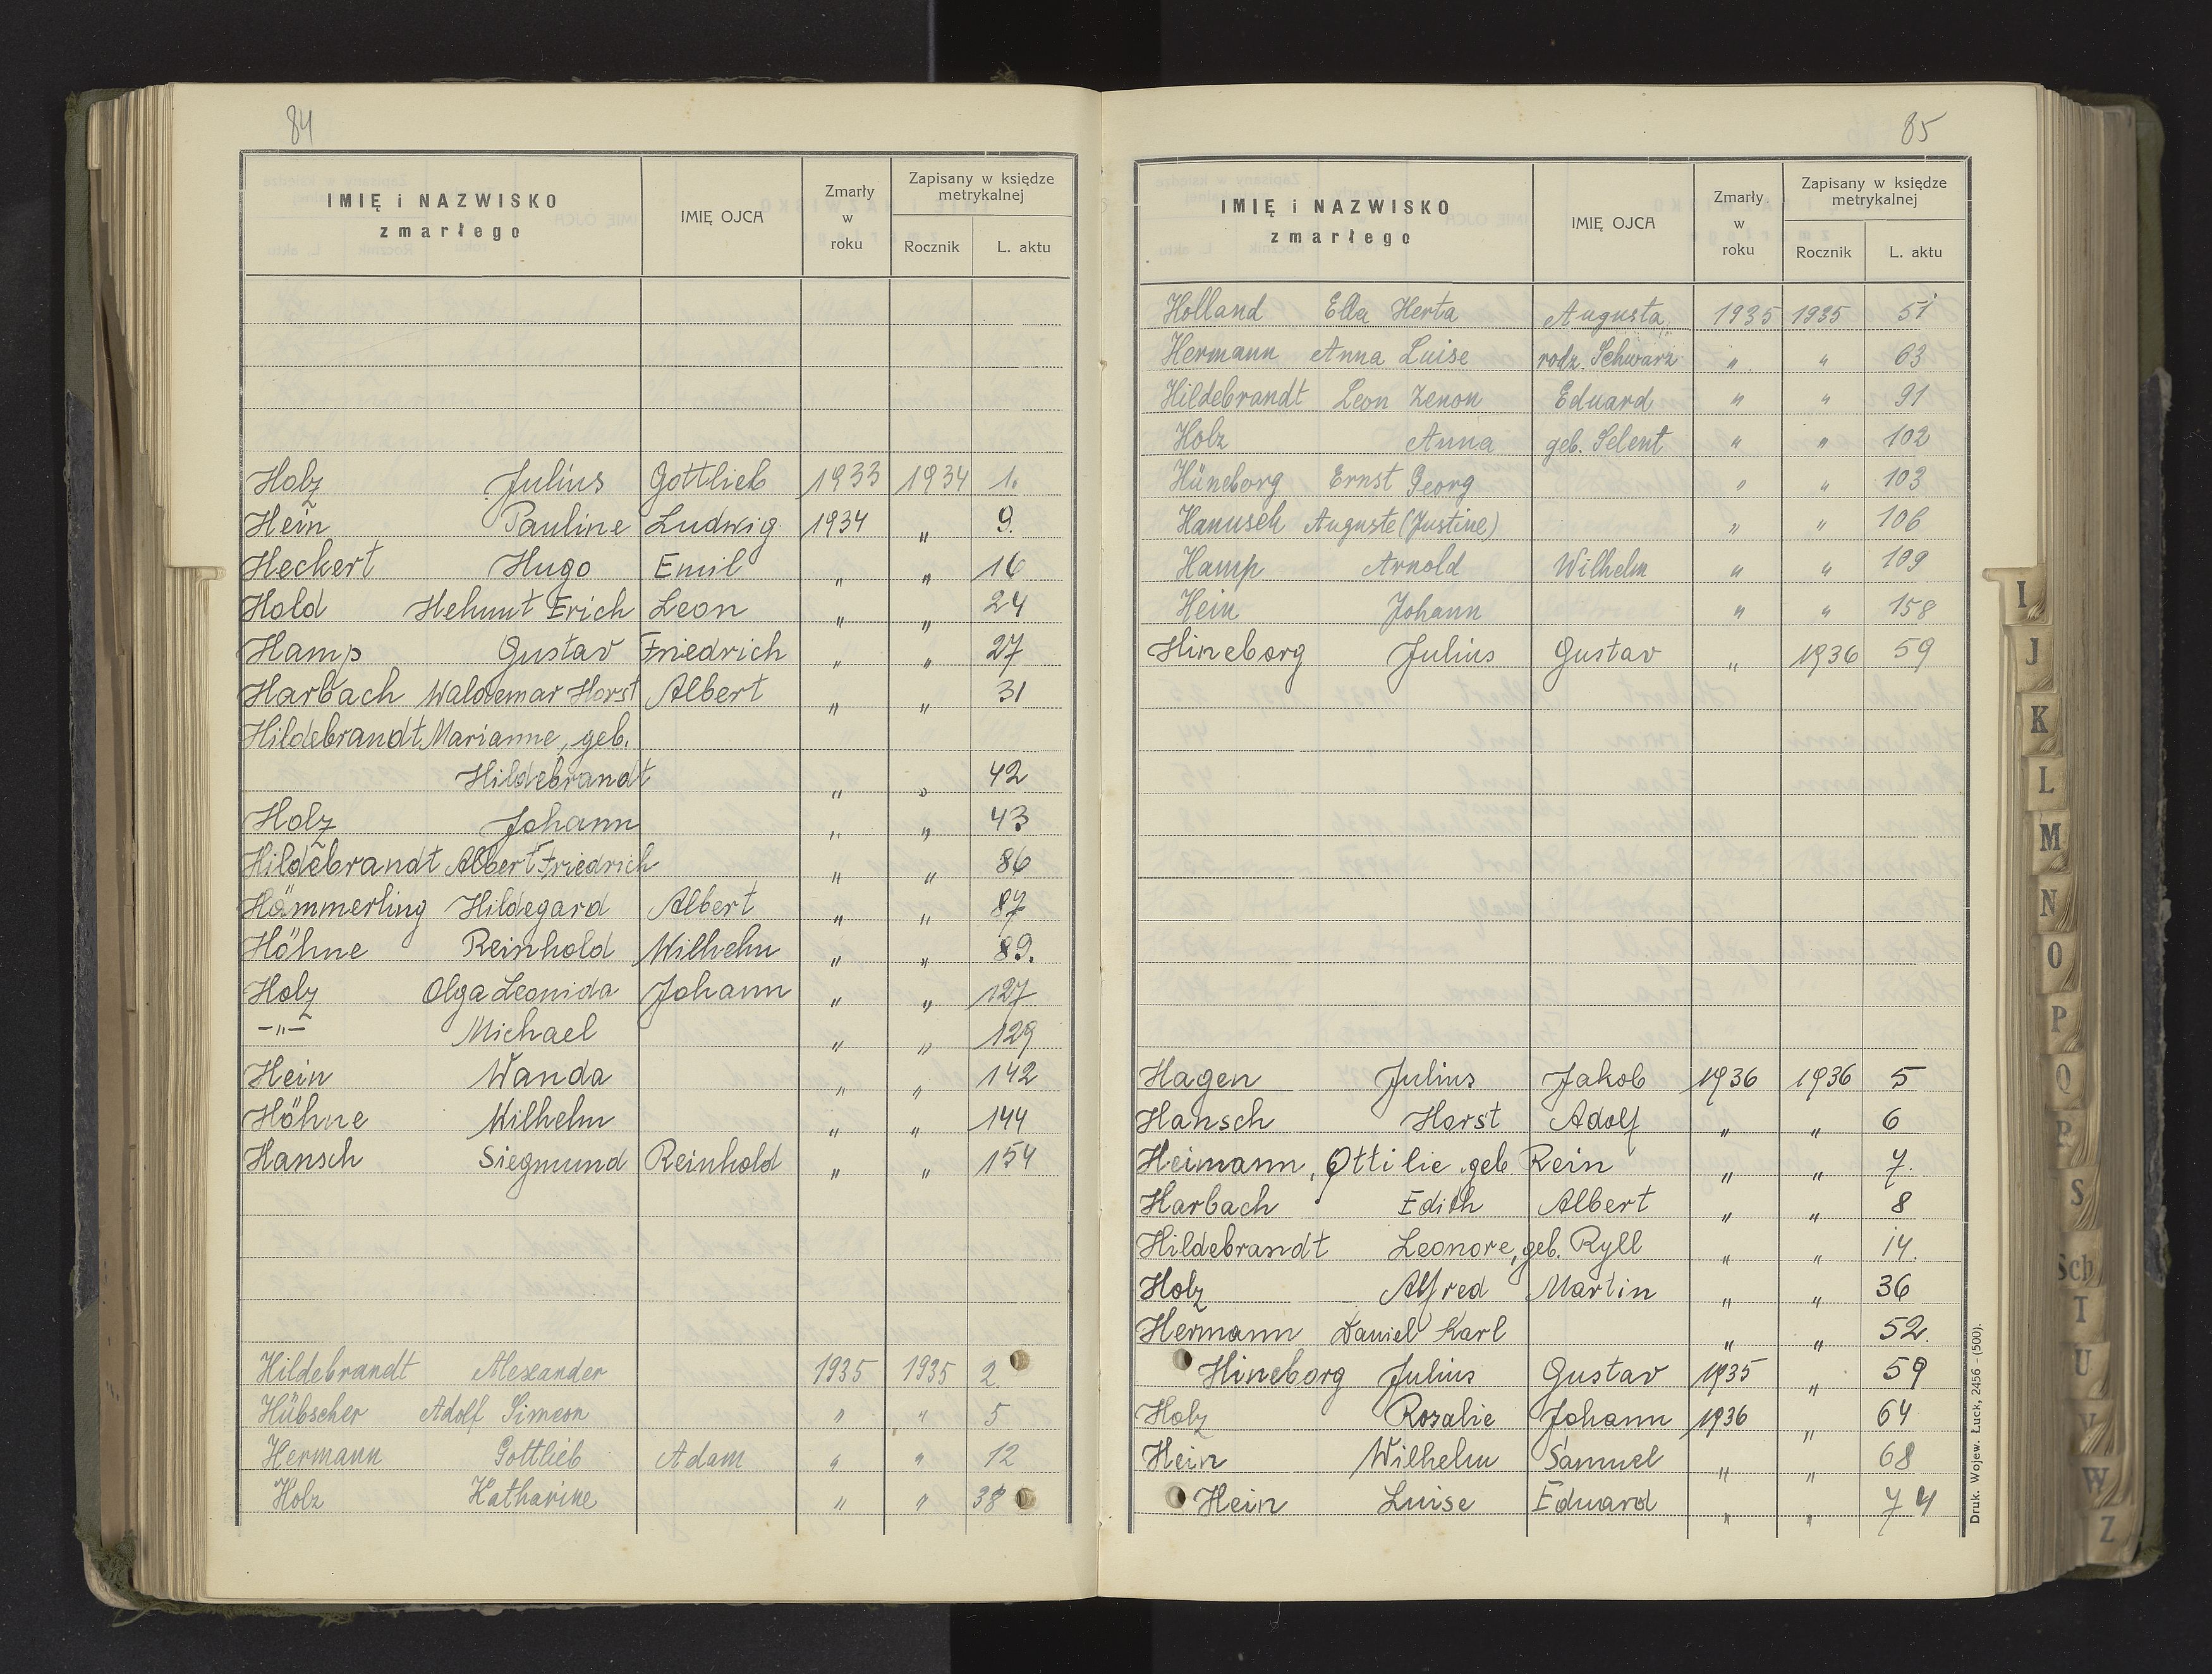 84
IMIĘ i NAZWISKO zmarłego IMIĘ OJCA Zmarły w roku Zapisany w księdze metrykalnej
Rocznik L. aktu
Holz Julius Gottlieb 1933 1934 1.
Hein Pauline Ludwig 1934 „ 9.
Heckert Hugo Emil „ „ 16
Hold Helmut Erich Leon „ „ 24
Hamp Gustav Friedrich „ „ 27
Harbach Waldemar Horst Albert „ „ 31
Hildebrandt Marianne, geb.
Hildebrandt „ „ 42
Holz Johann „ „ 43
Hildebrandt Albert Friedrich „ „ 86
Hämmerling Hildegard Albert „ „ 87
Höhne Reinhold Wilhelm „ „ 89.
Holz Olga Leonida Johann „ „ 127
-„- Michael „ „ 129
Hein Wanda „ „ 142
Höhne Wilhelm „ „ 144
Hansch Siegmund Reinhold „ „ 154
Hildebrandt Alexander 1935 1935 2.
Hübscher Adolf Simeon „ „ 5
Hermann Gottlieb Adam „ „ 12
Holz Katharine „ „ 38
85
IMIĘ i NAZWISKO zmarłego IMIĘ OJCA Zmarły w roku Zapisany w księdze metrykalnej
Rocznik L. aktu
Holland Ella Herta Augusta 1935 1935 51
Hermann Anna Luise rodz. Schwarz „ „ 63
Hildebrandt Leon Zenon Eduard „ „ 91
Holz Anna geb. Selent „ „ 102
Hüneborg Ernst Georg „ „ 103
Hanusch Auguste (Justine) „ „ 106
Hamp Arnold Wilhelm „ „ 109
Hein Johann „ „ 158
Hineborg Julius Gustav „ 1936 59
Hagen Julius Jakob 1936 1936 5
Hansch Horst Adolf „ „ 6
Heimann, Ottilie, geb Rein „ „ 7.
Harbach Edith Albert „ „ 8
Hildebrandt Leonore, geb. Ryll „ „ 14.
Holz Alfred Martin „ „ 36
Hermann Daniel Karl „ „ 52.
Hineborg Julius Gustav 1935 „ 59
Holz Rosalie Johann 1936 „ 64
Hein Wilhelm Samuel „ „ 68
Hein Luise Eduard „ „ 74
Druk. Wojew. Łuck, 2456 – (500).
I
J
K
L
M
N
O
P
Q
R
S
Sch
T
U
V
W
Z